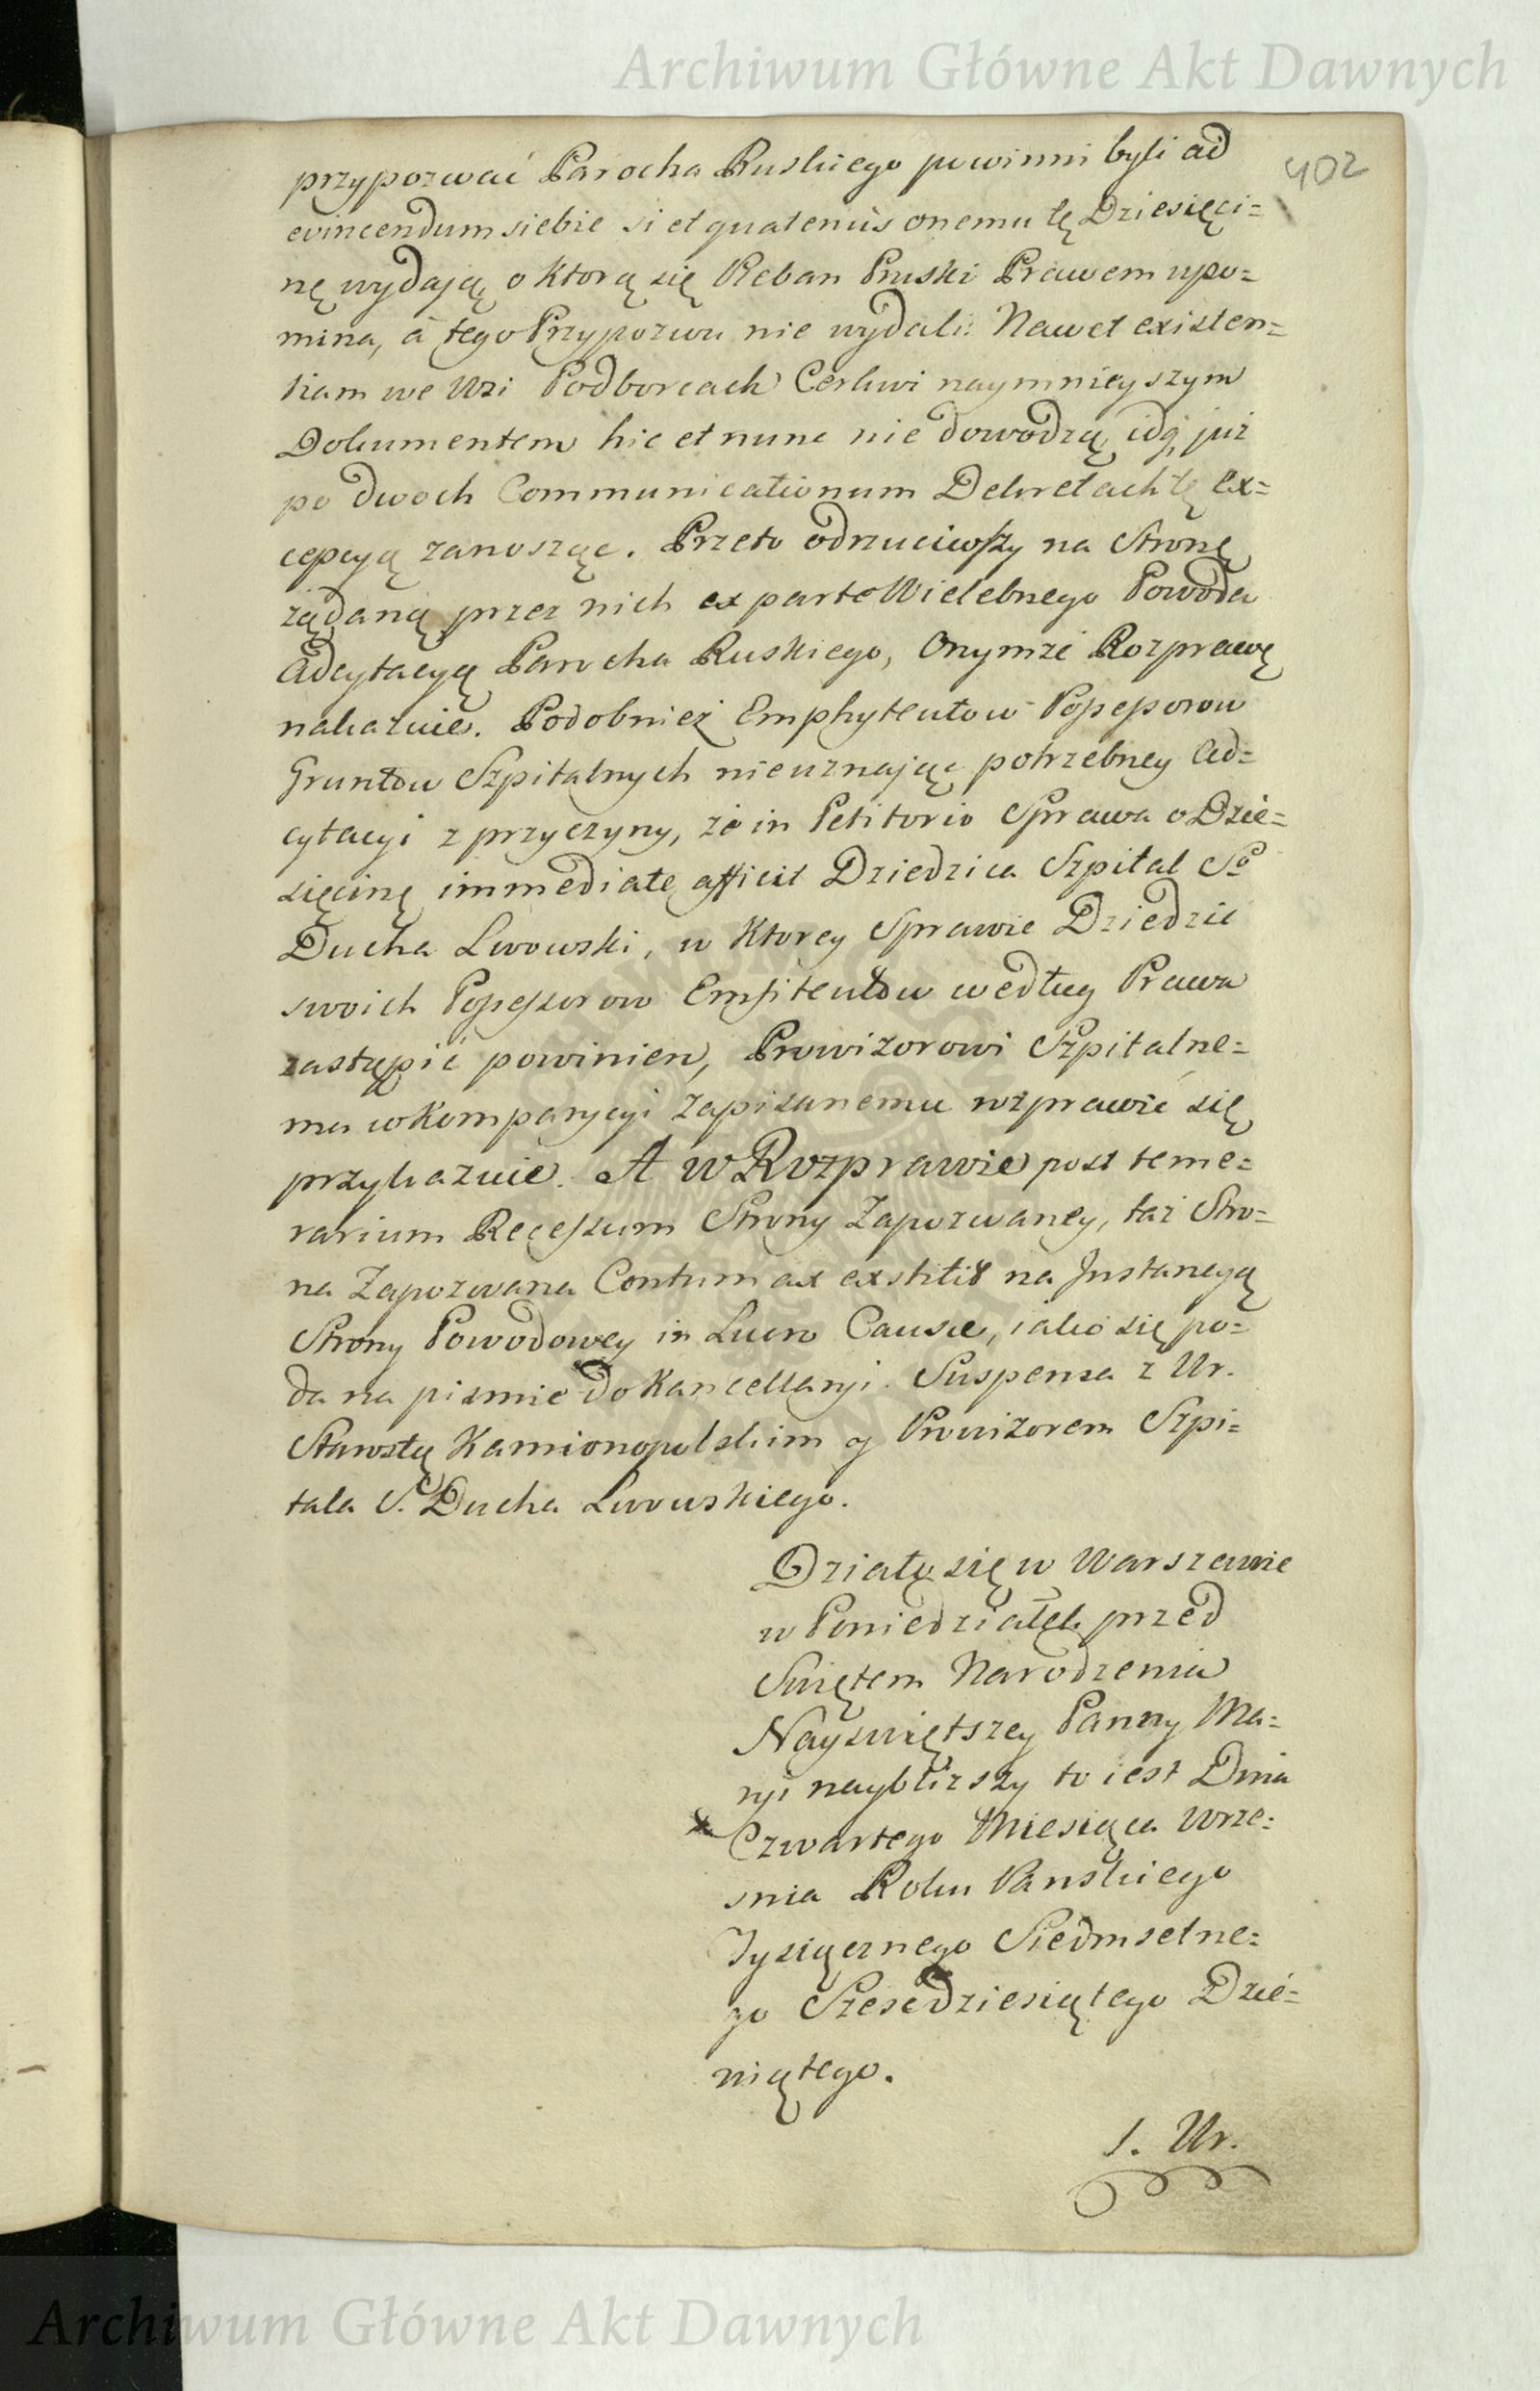 Archiwum Główne Akt Dawnych
402
przypozwać Parocha Ruskiego powinni byli ad
evincendum siebie si et quatenùs onemu tę Dziesięci=
nę wydają, o ktorą się Pleban Pruski Prawem upo=
mina, á tego Przypozwu nie wydali: Nawet existen=
tiam we Wsi Podborcach Cerkwi naymnieyszym
Dokumentem hic et nunc nie dowodzą, idą już
po dwoch Communicationum Dekretach tę ex=
cepcyą zanosząc. Przeto odrzuciwszy na Stronę
żądaną przez nich ex parte Wielebnego Powoda
Adcytacyą Parocha Ruskiego, Onymże Rozprawę
nakazuie. Podobnież Emphyteutow Possessorow
Gruntow Szpitalnych nieuznając potrzebney Ad=
cytacyi z przyczyny, że in Petitorio Sprawa o Dzie=
sięcinę immediate afficit Dziedzica Szpital So
Ducha Lwowski, w ktorey Sprawie Dziedzic
swoich Possessorow Emfiteutow według Prawa
zastąpić powinien, Prowizorowi Szpitalne=
mu w Komparycyi Zapisanemu rozprawić się
przykazuie. A w Rozprawie post teme=
rarium Recessum Strony Zapozwaney, taż Stro=
na Zapozwana Contumax exstitit na Jnstancyą
Strony Powodowey in Lucro Causæ, iako się po=
da na pismie do Kancellaryi. Suspensa z Ur.
Starostą Kamionopolskim y Prowizorem Szpi=
tala S. Ducha Lwowskiego.
Działo się w Warszawie
w Poniedziałek przed
Swiętem Narodzenia
Nayswiętszey Panny Ma=
ryi nayblizszy to iest Dnia
Czwartego Miesiąca Wrze=
snia Roku Panskiego
Tysiącznego Siedmsetne=
go Szescdziesiątego Dzie=
wiątego.
1. Ur.
Archiwum Główne Akt Dawnych